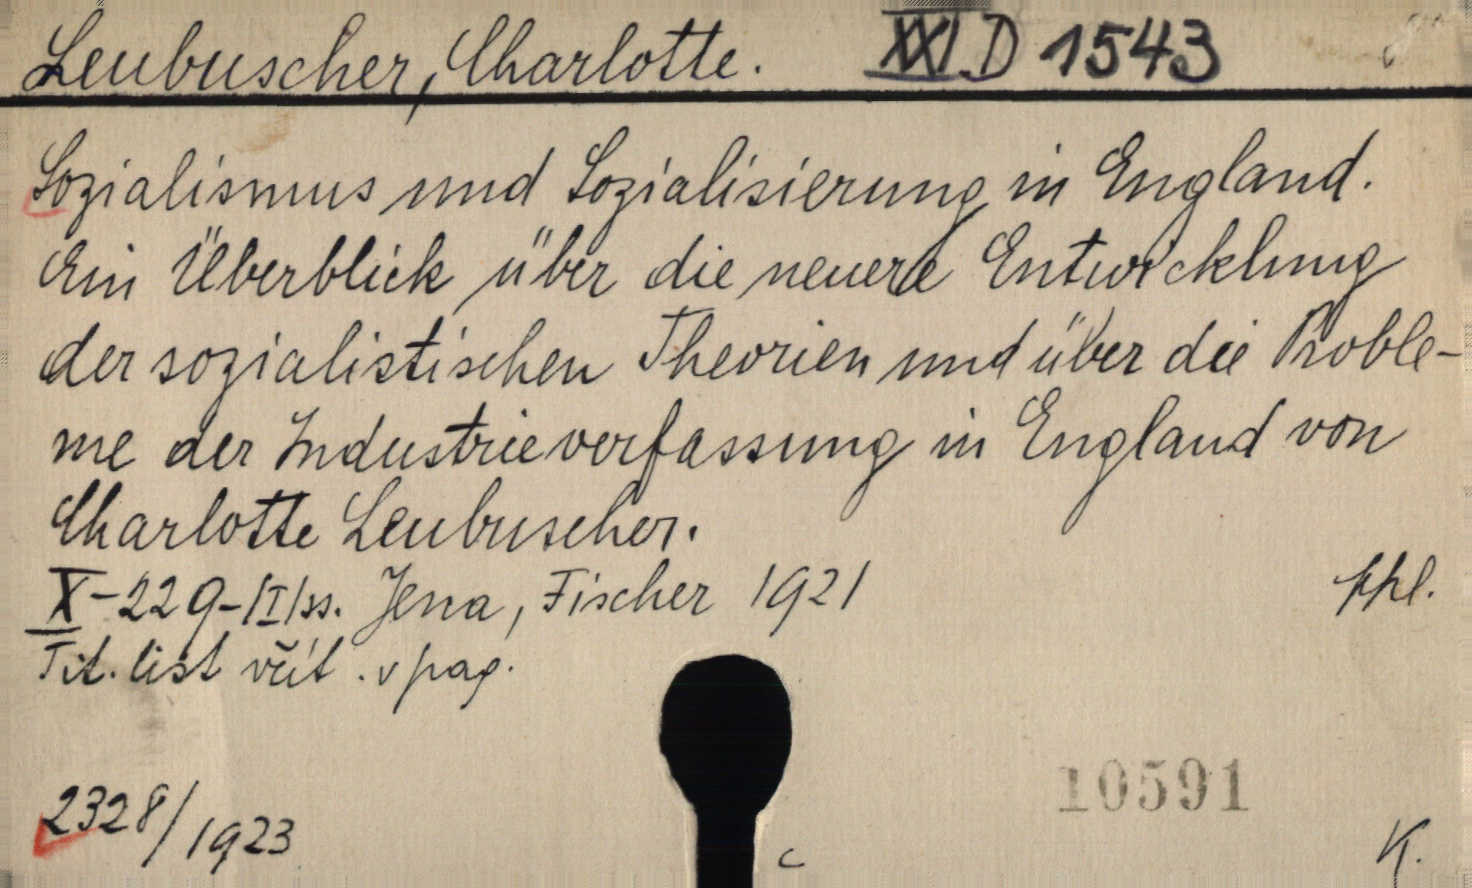 Leubuscher, Charlotte. XXI D 1543
Sozialismus und Sozialisierung in England.
Ein Überblick über die neuere Entwicklung
der sozialistischen Theorien und über die Proble-
me der Industrieverfassung in England von
Charlotte Leubuscher.
X-229-/I/ss. Jena, Fischer 1921 ppl.
Tit. list včít. v pag.
2328/1923
10591
c K.